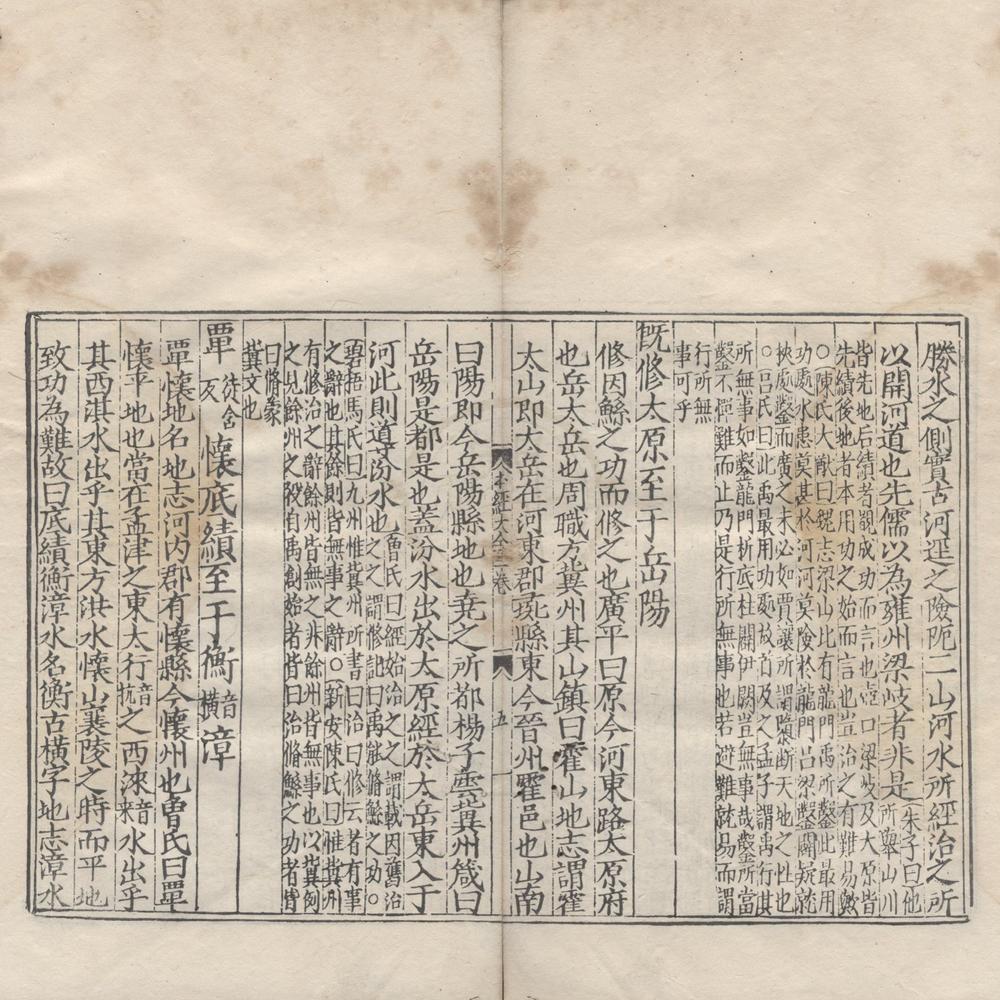 勝水之側實古河逕之險阨二山河水所經治之所
以開河道也先儒以為雍州梁岐者非是朱子曰他所舉山川
皆先地后績者覩成功而言也壺口梁岐及太原皆
先績後地者本用功之始而言也豈治之有難易歟
○陳氏大猷曰魏志梁山北有龍門禹所鑿此最用
功處水患莫甚於河河莫險於龍門呂梁鑿闢疑就
狹處鑿而廣之未必如賈讓所謂隳斷天地之性也
○呂氏曰此禹最用功處故首及之孟子謂禹行其
所無事如鑿龍門析底柱闢伊闕豈無事哉鑿所當
鑿不憚難而止乃是行所無事也若避難就易而謂
行所無
事可乎
既修太原至于岳陽
修因鯀之功而修之也廣平曰原今河東路太原府
也岳太岳也周職方冀州其山鎮曰霍山地志謂霍
太山即太岳在河東郡彘縣東今晉州霍邑也山南
本經大全三卷 五
曰陽即今岳陽縣地也堯之所都楊子雲冀州箴曰
岳陽是都是也蓋汾水出於太原經於太岳東入于
河此則導汾水也曾氏曰經始治之之謂載因舊治之之謂修記曰禹能脩鯀之功○
碧梧馬氏曰九州惟冀州所書曰治曰修云者有事
之辭也其餘則皆無事之辭○新安陳氏曰惟冀州
有修治之辭餘州皆無之非餘州皆無事也以冀例
之見餘州之役自禹創始者皆曰治脩鯀之功者皆
曰脩蒙
冀文也
覃徒含反懷底績至于衡音橫漳
覃懷地名地志河內郡有懷縣今懷州也曾氏曰覃
懷平地也當在孟津之東太行音杭之西淶音來水出乎
其西淇水出乎其東方洪水懷山襄陵之時而平地
致功為難故曰底績衡漳水名衡古橫字地志漳水